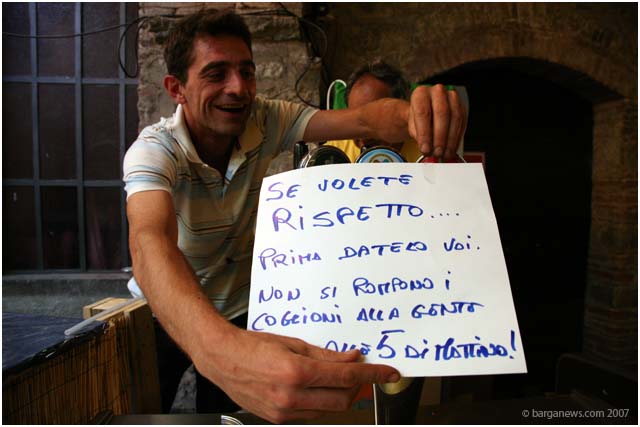 SE VOLETE
RISPETTO....
PRIMA DATELO VOI.
NON SI ROMPONO I
COGLIONI ALLA GENTE
ALLE 5 DI MATTINO!
© barganews.com 2007